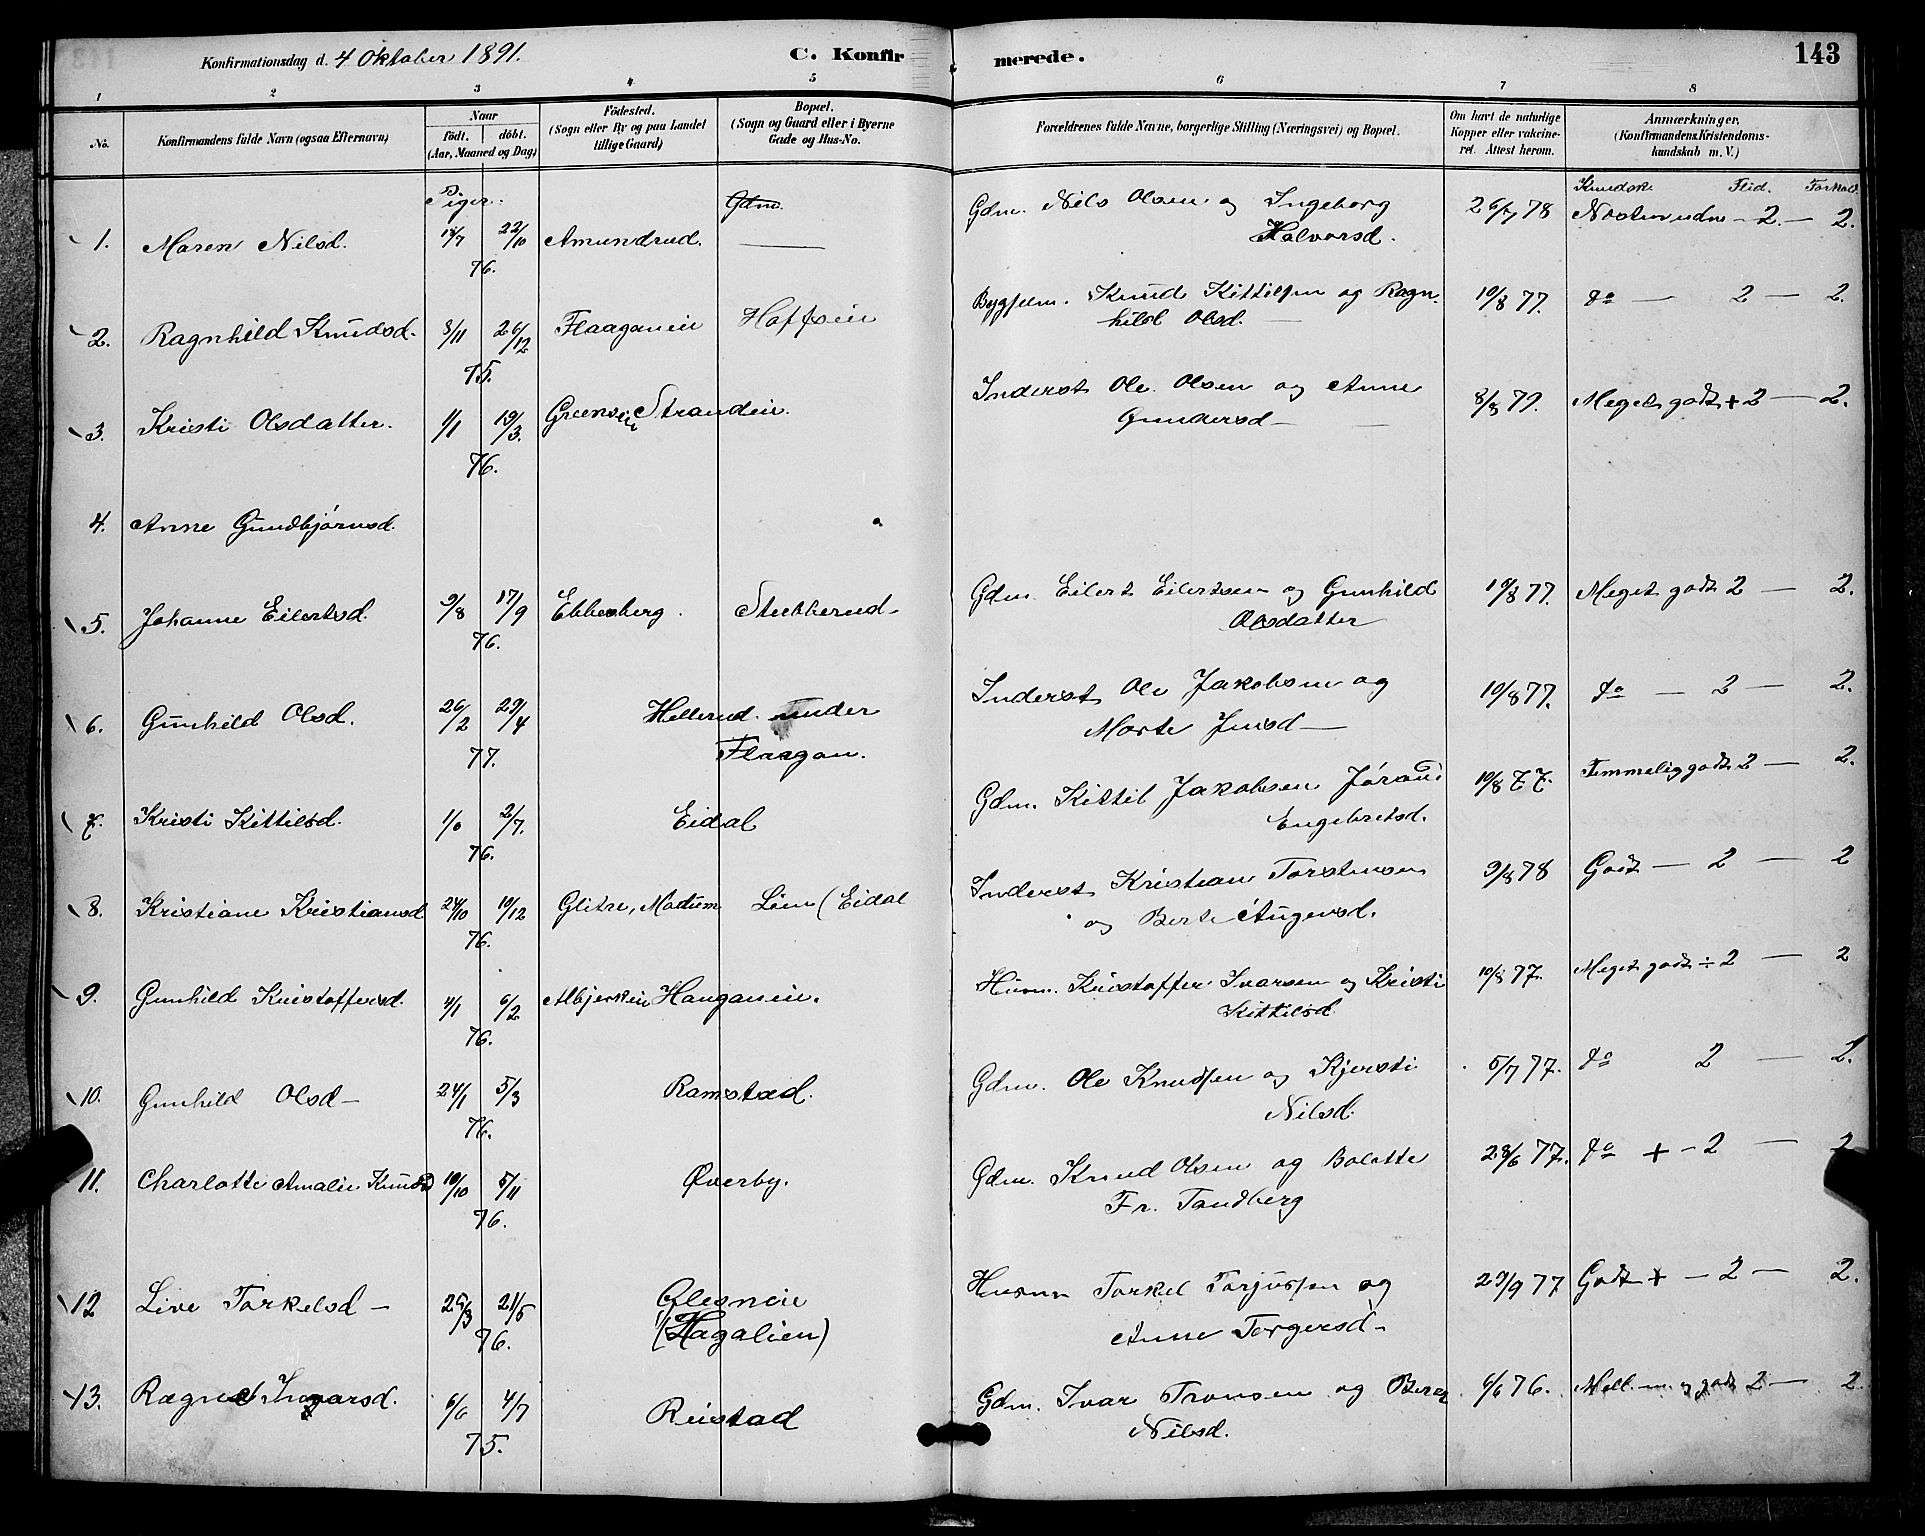 Konfirmationsdag d. 4 Oktober 1891.
C. Konfirmerede.
143
1 2 3 4 5 6 7 8
No.
Konfirmandens fulde Navn (ogsaa Efternavn)
Naar
födt. döbt.
(Aar, Maaned og Dag)
Födested.
(Sogn eller By og paa Landet
tillige Gaard)
Bopæl.
(Sogn og Gaard eller i Byerne
Gade og Hus-No.
Forældrenes fulde Navne, borgerlige Stilling (Næringsvei) og Bopæl.
Om havt de naturlige
Kopper eller vakcineret. Attest herom.
Anmærkninger.
(Konfirmandens Kristendomskundskab m. V.)
Piger. Gdm. Kundsk. Flid. Forhold.
1. Maren Nilsd. 22/10 76. Amundrud. — Gdm. Nils Olsen og Ingeborg
Halvorsd. 26/7 78 — 2. — 2.
2. Ragnhild Knudsd. 3/11 26/12 75. Flaaganeie Hoffseie Bygselm. Knud Kittilsen og Ragnhild Olsd. 10/8 77. do — 2 — 2.
3. Kristi Olsdatter. 1/1 19/3 76. Strandeie. Inderst Ole Olsen og Anne
Gundersd — 8/8 79. Meget godt + 2 — 2.
4. Anne Gundbjørnsd.
5. Johanne Eilertsd. 9/8 17/9 76. Ebbesberg. Stubberud Gdm. Eilert Eilertsen og Gunhild
Olsdatter 10/8 77. Meget godt 2 — 2.
6. Gunhild Olsd. 26/2 29/4 77. Hellerud under
Flaagan. Inderst Ole Jakobsen og
Marte Jensd — 10/8 77. do — 2 — 2.
7. Kristi Kittilsd. 2/7. 76. Eidal Gdm. Kittil Jakobsen Jørand
Engebretsd. 10/8 77. Temmelig godt 2 — 2.
8. Kristiane Kristiansd 24/10 10/12 76. Glitre, Modum Lien (Eidal Inderst Kristian Torstensen
og Berte Augensd. 9/8 78 Godt — 2 — 2
9. Gunhild Kristoffersd. 4/1 6/2 76. Albjerkeie Hauganeie. Husm. Kristoffer Ivarsen og Kristi
Kittilsd 10/8 77. Meget godt ÷ 2 — 2
10. Gunhild Olsd — 24/1 5/3 76. Ramstad. Gdm. Ole Knudsen og Kjersti
Nilsd. 5/7 77. do 2 — 2.
11. Charlotte Amalie Knudsd 10/10 5/11 76. Øverby. Gdm. Knud Olsen og Bolette
Fr. Tandberg 28/6 77. do + — 2 — 2
12 Live Torkelsd — 25/3 21/5 76. Glesneeie
(Hagalien) Husm Torkel Torjussen og
Anne Torgersd — 29/9 77 Godt + — 2 — 2.
13. Ivarsd. 6/6 4/7 75. Reistad Gdm. Ivar Tronsen og
Nilsd. 6/6 76. 2 — 2.